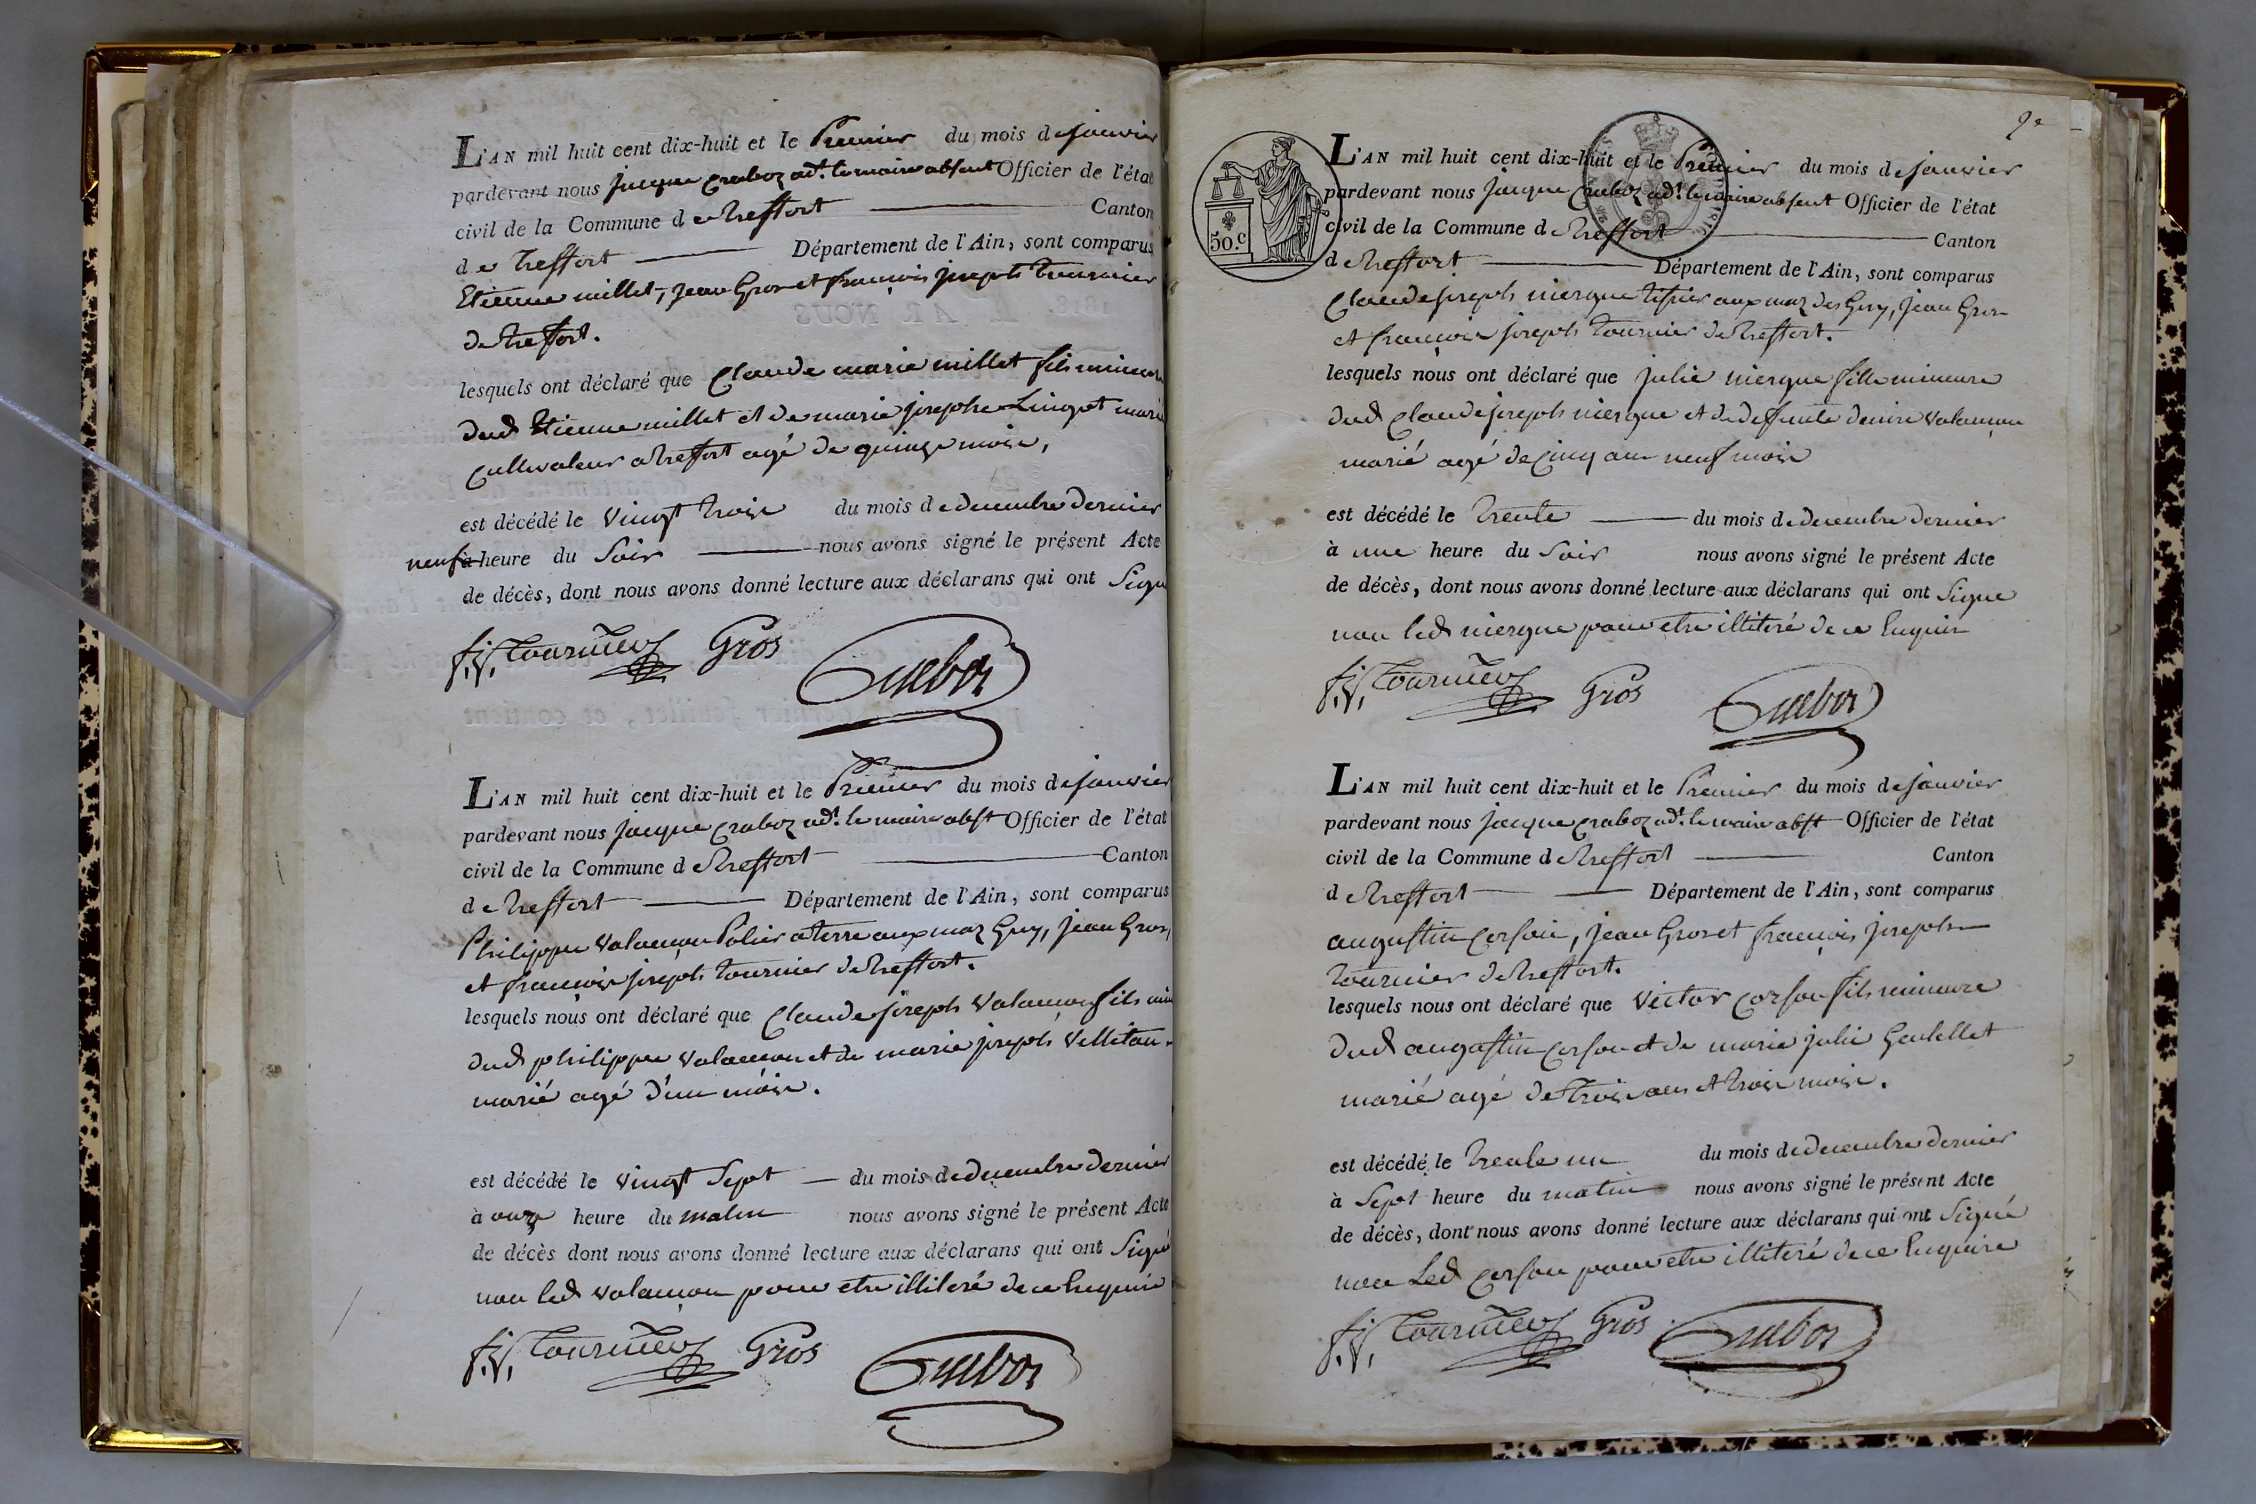 L'AN mil huit cent dix-huit et le Premier du mois de janvier
pardevant nous jacque craboz adt. le maire absent Officier de l'état
civil de la Commune de treffort Canton
de treffort Département de l'Ain, sont comparus
Etienne millet, jean Gros et françois joseph tournier
de treffort.
lesquels ont déclaré que Claude marie millet fils mineur
dud Etienne millet et de marie josephe Lingot marié
cultivateur a treffort agé de quinze mois,
est décédé le vingt trois du mois de decembre dernier
neuf à heure du Soir nous avons signé le présent Acte
de décès, dont nous avons donné lecture aux déclarans qui ont Signé
f. j. tournier Gros Craboz
L'AN mil huit cent dix-huit et le Premier du mois de janvier
pardevant nous jacque craboz adt. le maire abst Officier de l'état
civil de la Commune de treffort Canton
de treffort Département de l'Ain, sont comparus
Philippe valançon Potier a terre aux maz Guy, jean Gros,
et françois joseph tournier de treffort.
lesquels nous ont déclaré que Claude joseph valançon fils min
dud philippe valançon et de marie joseph
marié agé d'un mois.
est décédé le vingt Sept du mois de decembre dernier
à onze heure du matin nous avons signé le présent Acte
de décès dont nous avons donné lecture aux déclarans qui ont Signé
non led valançon pour etre illiteré de ce Enquis
f. j. tournier Gros Craboz
2e
50.c
L'AN mil huit cent dix-huit et le Premier du mois de janvier
pardevant nous jacque craboz adt. le maire absent Officier de l'état
civil de la Commune de treffort Canton
de treffort Département de l'Ain, sont comparus
Claude joseph niergue tissier aux maz des Guy, jean Gros
et françois joseph tournier de treffort.
lesquels nous ont déclaré que julie niergue fille mineure
dud Claude joseph niergue et de deffunte denise valançon
marié agé de cinq ans neuf mois
est décédé le trente du mois de decembre dernier
à une heure du Soir nous avons signé le présent Acte
de décès, dont nous avons donné lecture aux déclarans qui ont Signé
non led niergue pour etre illiteré de ce Enquis
f. j. tournier Gros Craboz
L'AN mil huit cent dix-huit et le Premier du mois de janvier
pardevant nous jacque craboz adt. le maire abst Officier de l'état
civil de la Commune de treffort Canton
de treffort Département de l'Ain, sont comparus
augustin corson, jean Gros et françois joseph
tournier de treffort.
lesquels nous ont déclaré que victor corson fils mineure
dud augustin corson et de marie julie
marié agé de trois ans et trois mois.
est décédé le trente un du mois de decembre dernier
à Sept heure du matin nous avons signé le présent Acte
de décès, dont nous avons donné lecture aux déclarans qui ont Signé
non Led corson pour etre illiteré de ce Enquire
f. j. tournier Gros Craboz